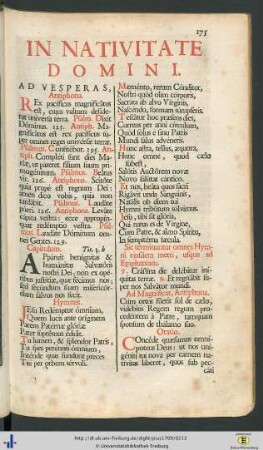 175
IN NATIVITATE
DOMINI.
AD VESPERAS,
Antiphona
REx pacificus magnificatus
est, cujus vultum desiderat
universa terra. Psalm. Dixit
Dominus. 125. Antiph. Magnificatus
est rex pacificus super
omnes reges universæ terræ.
Psalmus. Confitebor. 195. Antiph.
Completi sunt dies Mariæ,
ut pareret filium suum primogenitum.
Psalmus. Beatus
vir. 126. Antiphona. Scitote
quia propè est regnum Dei:
amen dico vobis, quia non
tardabit. Psalmus. Laudate
pueri. 126. Antiphona. Levate
capita vestra: ecce appropinquat
redemptio vestra. Psalmus.
Laudate Dominum omnes
Gentes. 129.
Capitulum. Tit. 3. b
APparuit benignitas &
humanitas Salvatoris
nostri Dei: non ex operibus
justitiæ, quæ fecimus nos,
sed secundum suam misericordiam
salvos nos fecit.
Hymnus.
JEsu Redemptor omnium,
Quem lucis ante originem
Parem Paternæ gloriæ
Pater supremus edidit.
Tu lumen, & splendor Patris,
Tu spes perennis omnium,
Intende quas fundunt preces
Tui per orbem servuli.
Memento, rerum Conditor,
Nostri quod olim corporis,
Sacrata ab alvo Virginis,
Nascendo, formam sumpseris.
Testatur hoc præsens dies,
Currens per anni circulum,
Quod solus è sinu Patris
Mundi salus adveneris.
Hunc astra, tellus, æquora,
Hunc omne, quod cælo
subest,
Salutis Auctorem novæ
Novo salutat cantico.
Et nos, beata quos sacri
Rigavit unda Sanguinis,
Natalis ob diem tui
Hymni tributum solvimus.
Jesu, tibi sit gloria,
Qui natus es de Virgine,
Cum Patre, & almo Spiritu,
In sempiterna sæcula.
Sic terminantur omnes Hymni
ejusdem metri, usque ad
Epiphaniam.
℣. Crastina die delebitur iniquitas
terræ. ℟. Et regnabit super
nos Salvator mundi.
Ad Magnificat, Antiphona.
Cum ortus fuerit sol de cælo,
videbitis Regem regum procedentem
à Patre, tamquam
sponsum de thalamo suo.
Oratio.
COncede quæsumus omnipotens
Deus: ut nos unigeniti
tui nova per carnem nativitas
liberet, quos sub peccati
http://dl.ub.uni-freiburg.de/diglit/psus1700/0213
© Universitätsbibliothek Freiburg